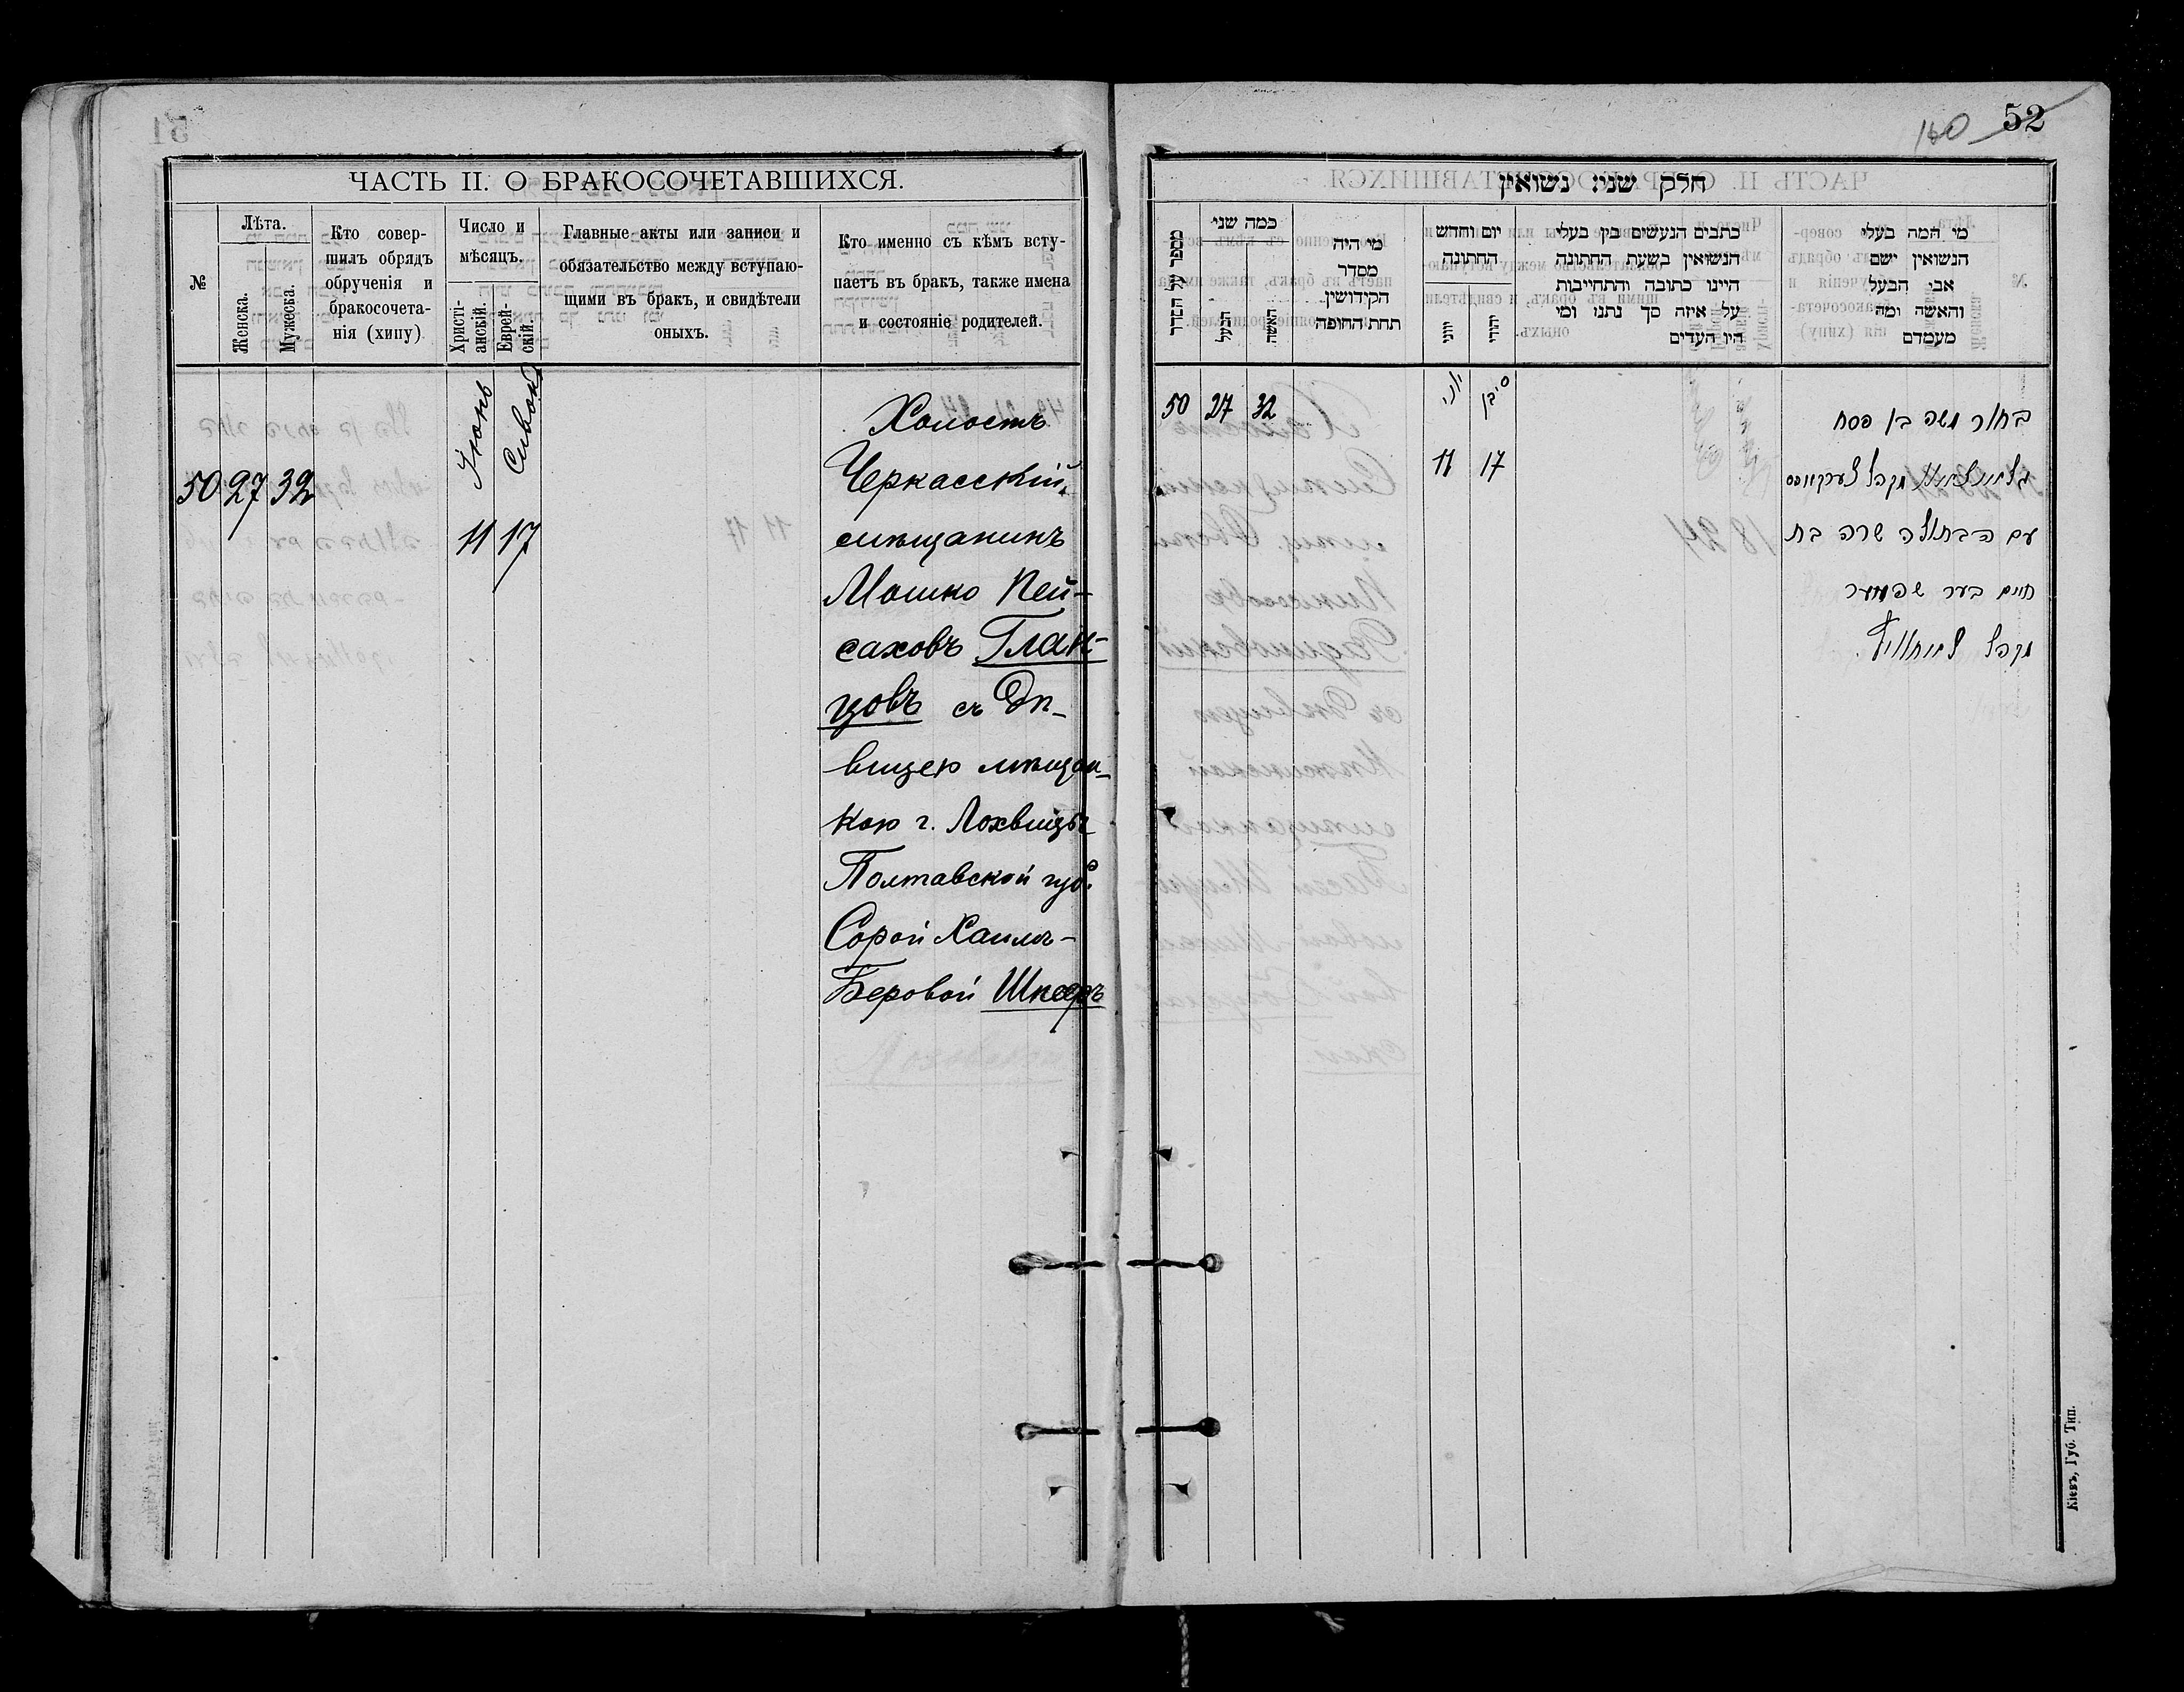 ЧАСТЬ II. О БРАКОСОЧЕТАВШИХСЯ.
№
Лѣта.
Женска.
Мужеска.
Кто совер-
шилъ обрядъ
обрученія и
бракосочета-
нія (хипу)
Число и
мѣсяцъ.
Христі-
анскій.
Еврей-
скій.
Главные акты или записи и
обязательство между вступаю-
щими въ бракъ, и свидѣтели
оныхъ.
Кто именно съ кѣмъ всту-
паетъ въ бракъ, также имена
и состояніе родителей.
50 27 32
Іюнь
11
17
Холостъ
Черкасскій
мѣщанинъ
Мошко Пей-
саховъ Глан-
цовъ съ Дѣ-
вицею мѣщан-
кою г. Лохвицы
Полтавской губ.
Сорой Хаимъ-
Беровой
52
160
חלק שני: נשואין
מספר על הסדר
כמה שני
הבעל
האשה
מי היה
מסדר
הקידושין
תחת החופה
יום וחדש
החתונה
יוני
יהודי
כתבים הנעשים בין בעלי
הנשואין בשעת החתונה
היינו כתובה והתחייבות
על איזה סך נתנו ומי
היו העדים
מי המה בעלי
הנשואין ישם
אבי הבעל
והאשה ומה
מעמדם
50 27 32
יוני
11
סיבן
17
בחור משה בן פסח
מקהל
עם הבתולה שרה בת
חיים בער
מקהל
Кіевъ, Губ. Тип.